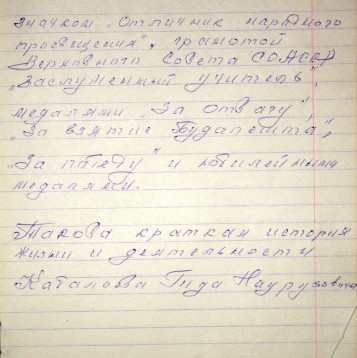 значком „Отличник народного
просвещения", грамотой
Верховного Совета СОАССР
„Заслуженный учитель",
медалями „За отвагу",
„За взятие Будапешта",
„За победу" и юбилейными
медалями.
Такова краткая история
жизни и деятельности
Наурузовича